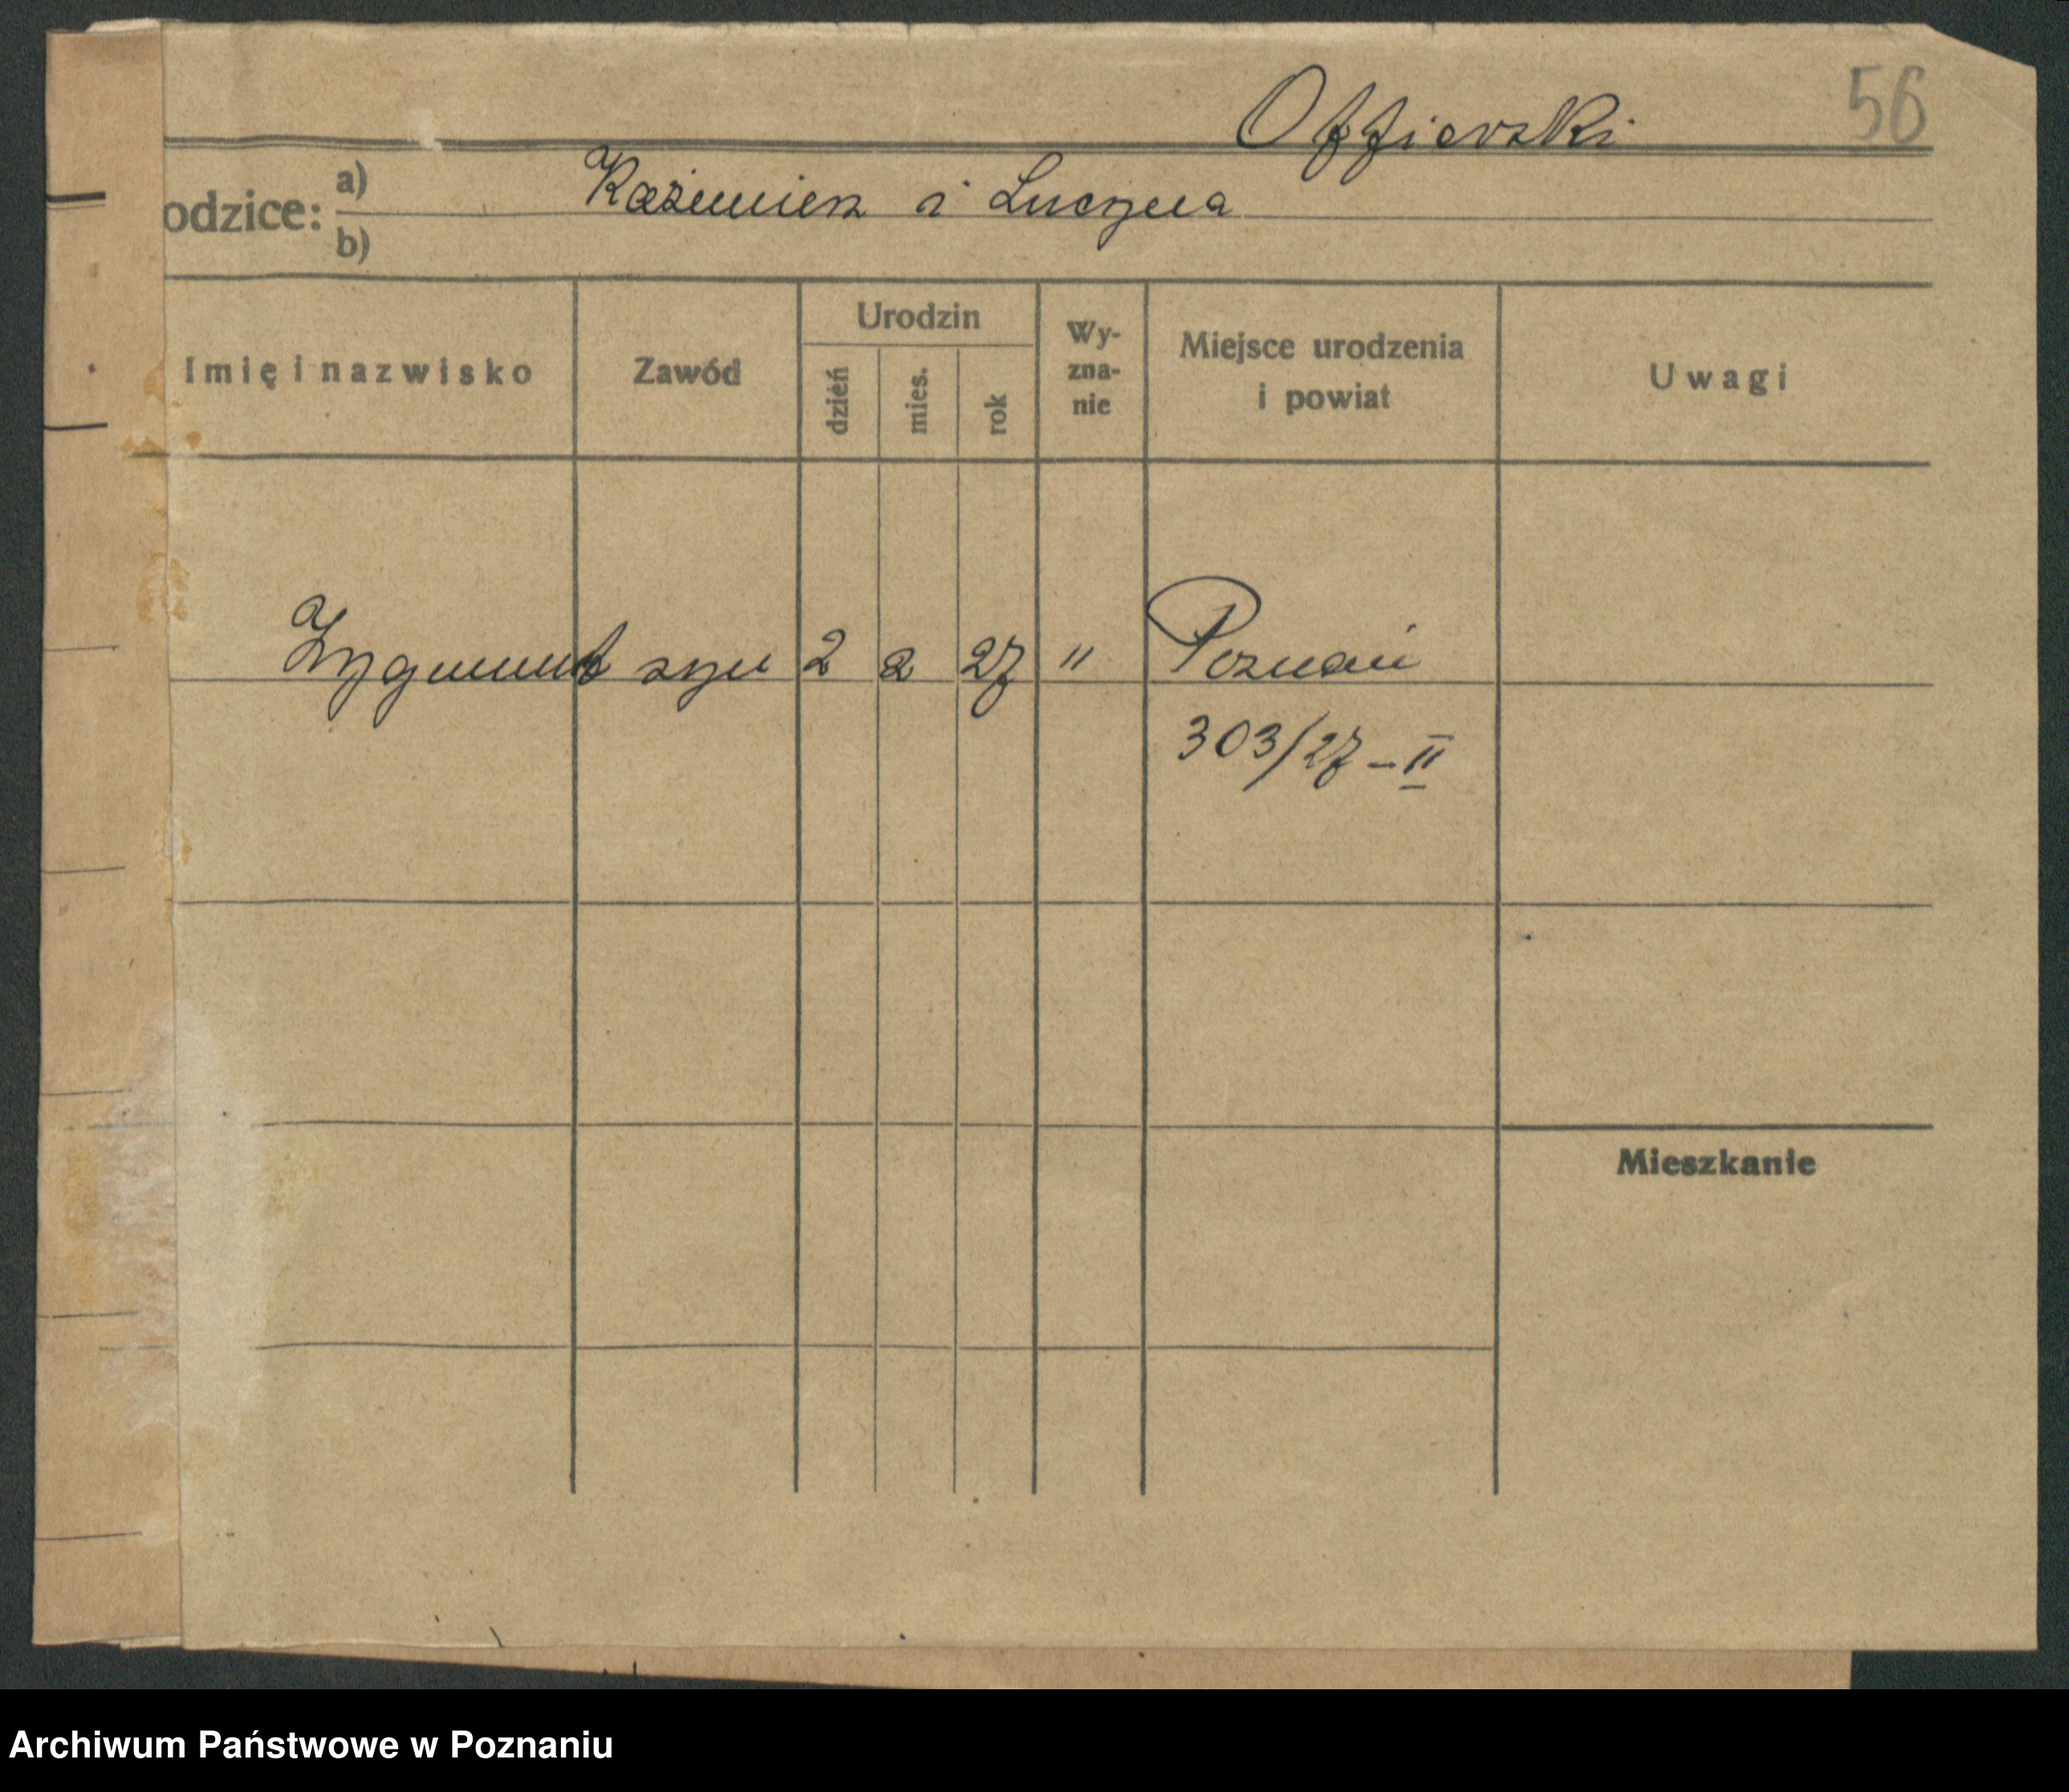 Offierski 56
odzice: a) Kaźimierz i Lucyna
b)
Imię i nazwisko Zawód Urodzin dzień mies. rok Wy-zna-nie Miejsce urodzenia i powiat Uwagi
Zygmunt syn 2 2 27 " Poznań
303/27 – II
Mieszkanie
Archiwum Państwowe w Poznaniu